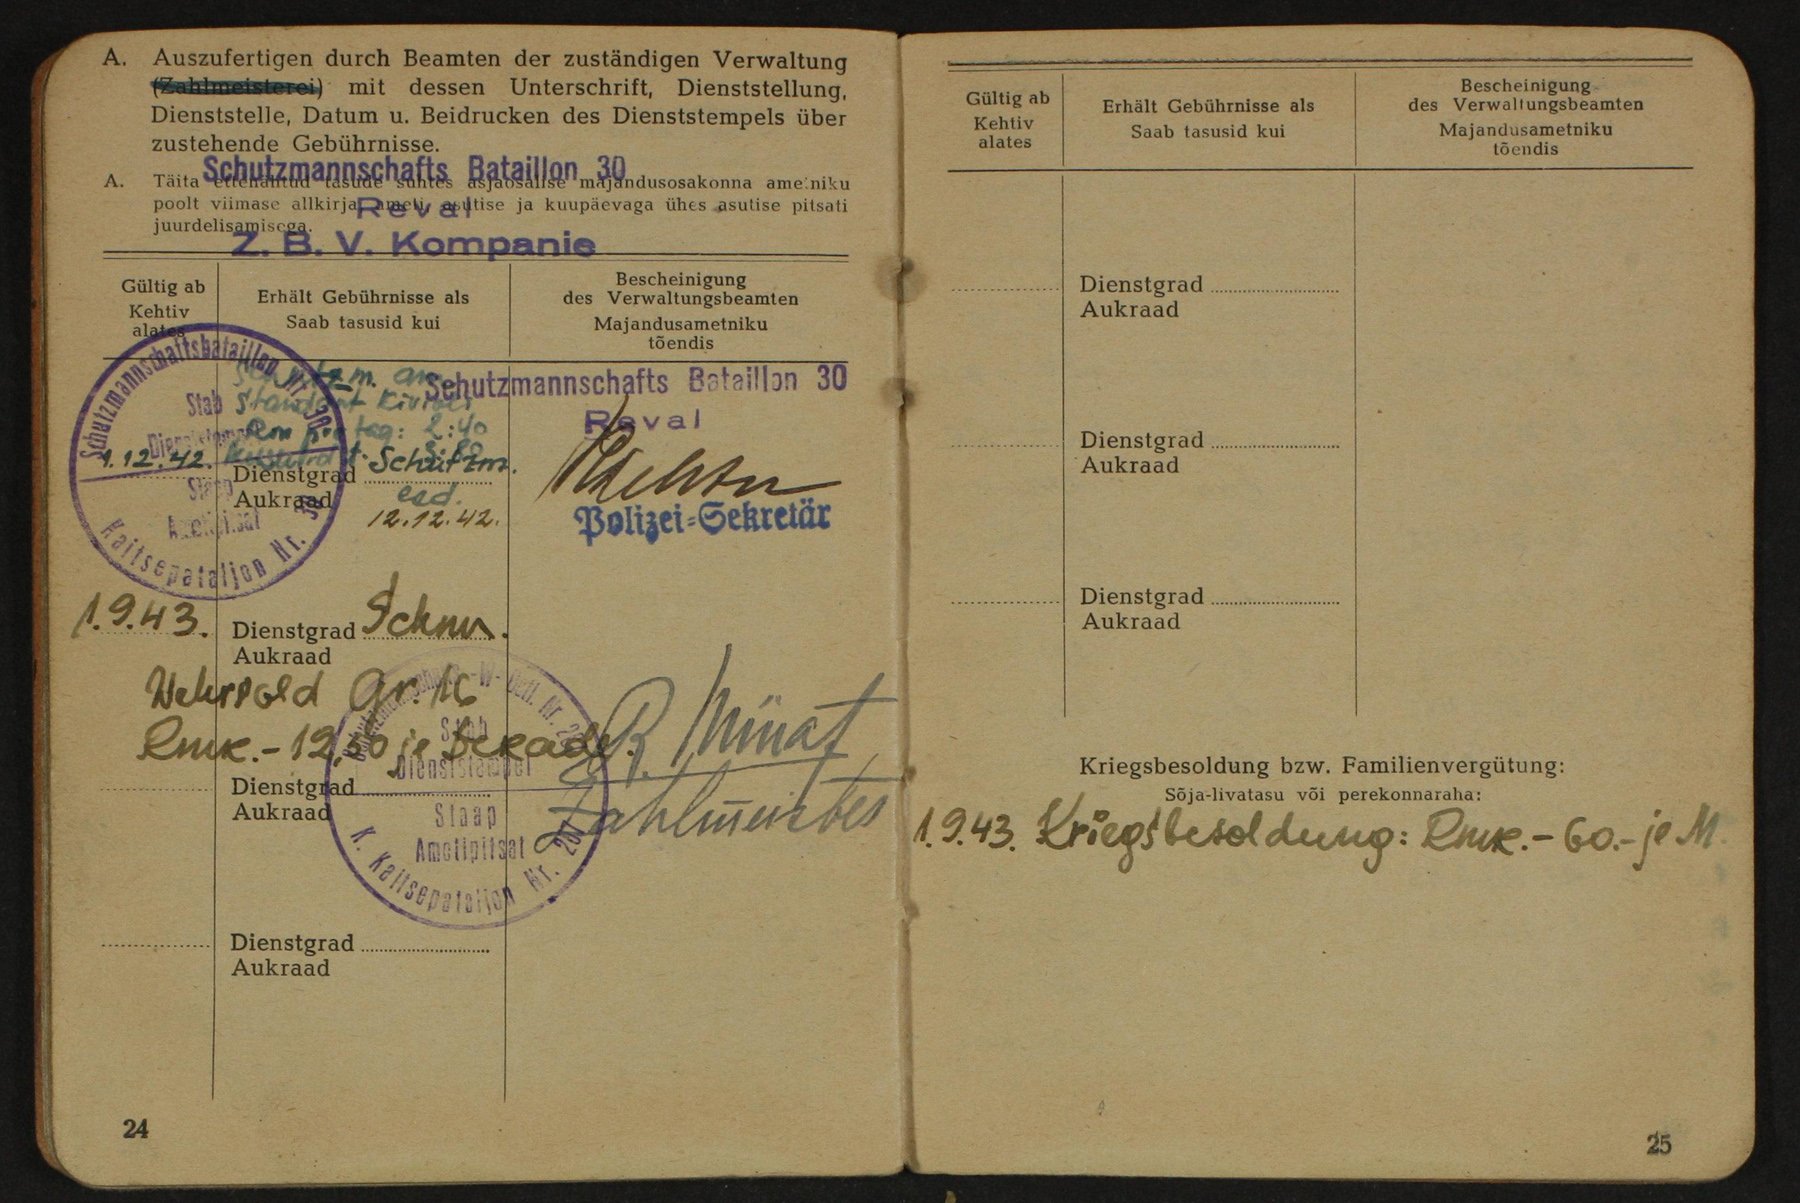 A. Auszufertigen durch Beamten der zuständigen Verwaltung
(Zahlmeisterei) mit dessen Unterschrift, Dienststellung,
Dienststelle, Datum u. Beidrucken des Dienststempels über
zustehende Gebührnisse.
Schutzmannschafts Bataillon 30
A. Täita ettenähtud tasude suhtes asjaosalise majandusosakonna ametniku
poolt viimase allkirja, ameti, asutise ja kuupäevaga ühes asutise pitsati
Reval
juurdelisamisega.
Z. B. V. Kompanie
Gültig ab
Kehtiv
alates
Erhält Gebührnisse als
Saab tasusid kui
Bescheinigung
des Verwaltungsbeamten
Majandusametniku
tõendis
Schutzmannschaftsbataillon Nr. 30
Stab
Dienststempel
Staap
Ametipitsat
Kaitsepataljon Nr. 30
Standort
tag: 2:40
1.12.42.
Dienstgrad Schutzm.
Aukraad
12.12.42.
Schutzmannschafts Bataillon 30
Reval
Polizei=Sekretär
1.9.43.
Dienstgrad Schm.
Aukraad
Wehrsold Gr. 16
Rmk.- 12,50 je Dekade.
Stab
Dienststempel
Staap
Ametipitsat
K. Kaitsepataljon Nr. 207
R. Münat
Zahlmeister
Dienstgrad
Aukraad
Dienstgrad
Aukraad
24
Gültig ab
Kehtiv
alates
Erhält Gebührnisse als
Saab tasusid kui
Bescheinigung
des Verwaltungsbeamten
Majandusametniku
tõendis
Dienstgrad
Aukraad
Dienstgrad
Aukraad
Dienstgrad
Aukraad
Kriegsbesoldung bzw. Familienvergütung:
Sõja-livatasu või perekonnaraha:
1.9.43. Kriegsbesoldung: Rmk.- 60.- je M.
25